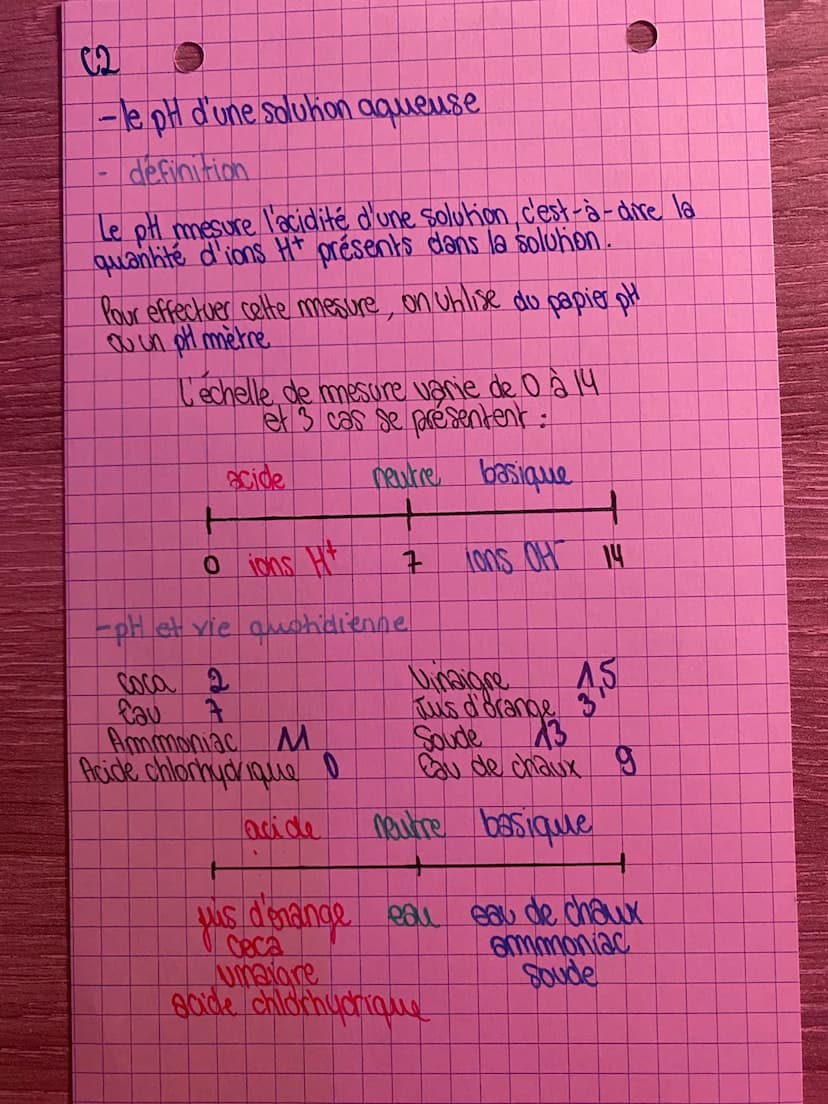 C2
- le pH d'une solution aqueuse
- définition
Le pH mesure l'acidité d'une solution, c'est-à-dire la
quantité d'ions H⁺ présents dans la solution.
Pour effectuer cette mesure, on utilise du papier pH
ou un pH mètre
L'échelle de mesure varie de 0 à 14
et 3 cas se présentent :
acide neutre basique
0 ions H⁺ 7 ions OH⁻ 14
- pH et vie quotidienne
Coca 2 Vinaigre 1,5
Eau 7 Jus d'orange 3
Ammoniac 11 Soude 13
Acide chlorhydrique 0 Eau de chaux 9
acide neutre basique
jus d'orange eau eau de chaux
coca ammoniac
vinaigre soude
acide chlorhydrique